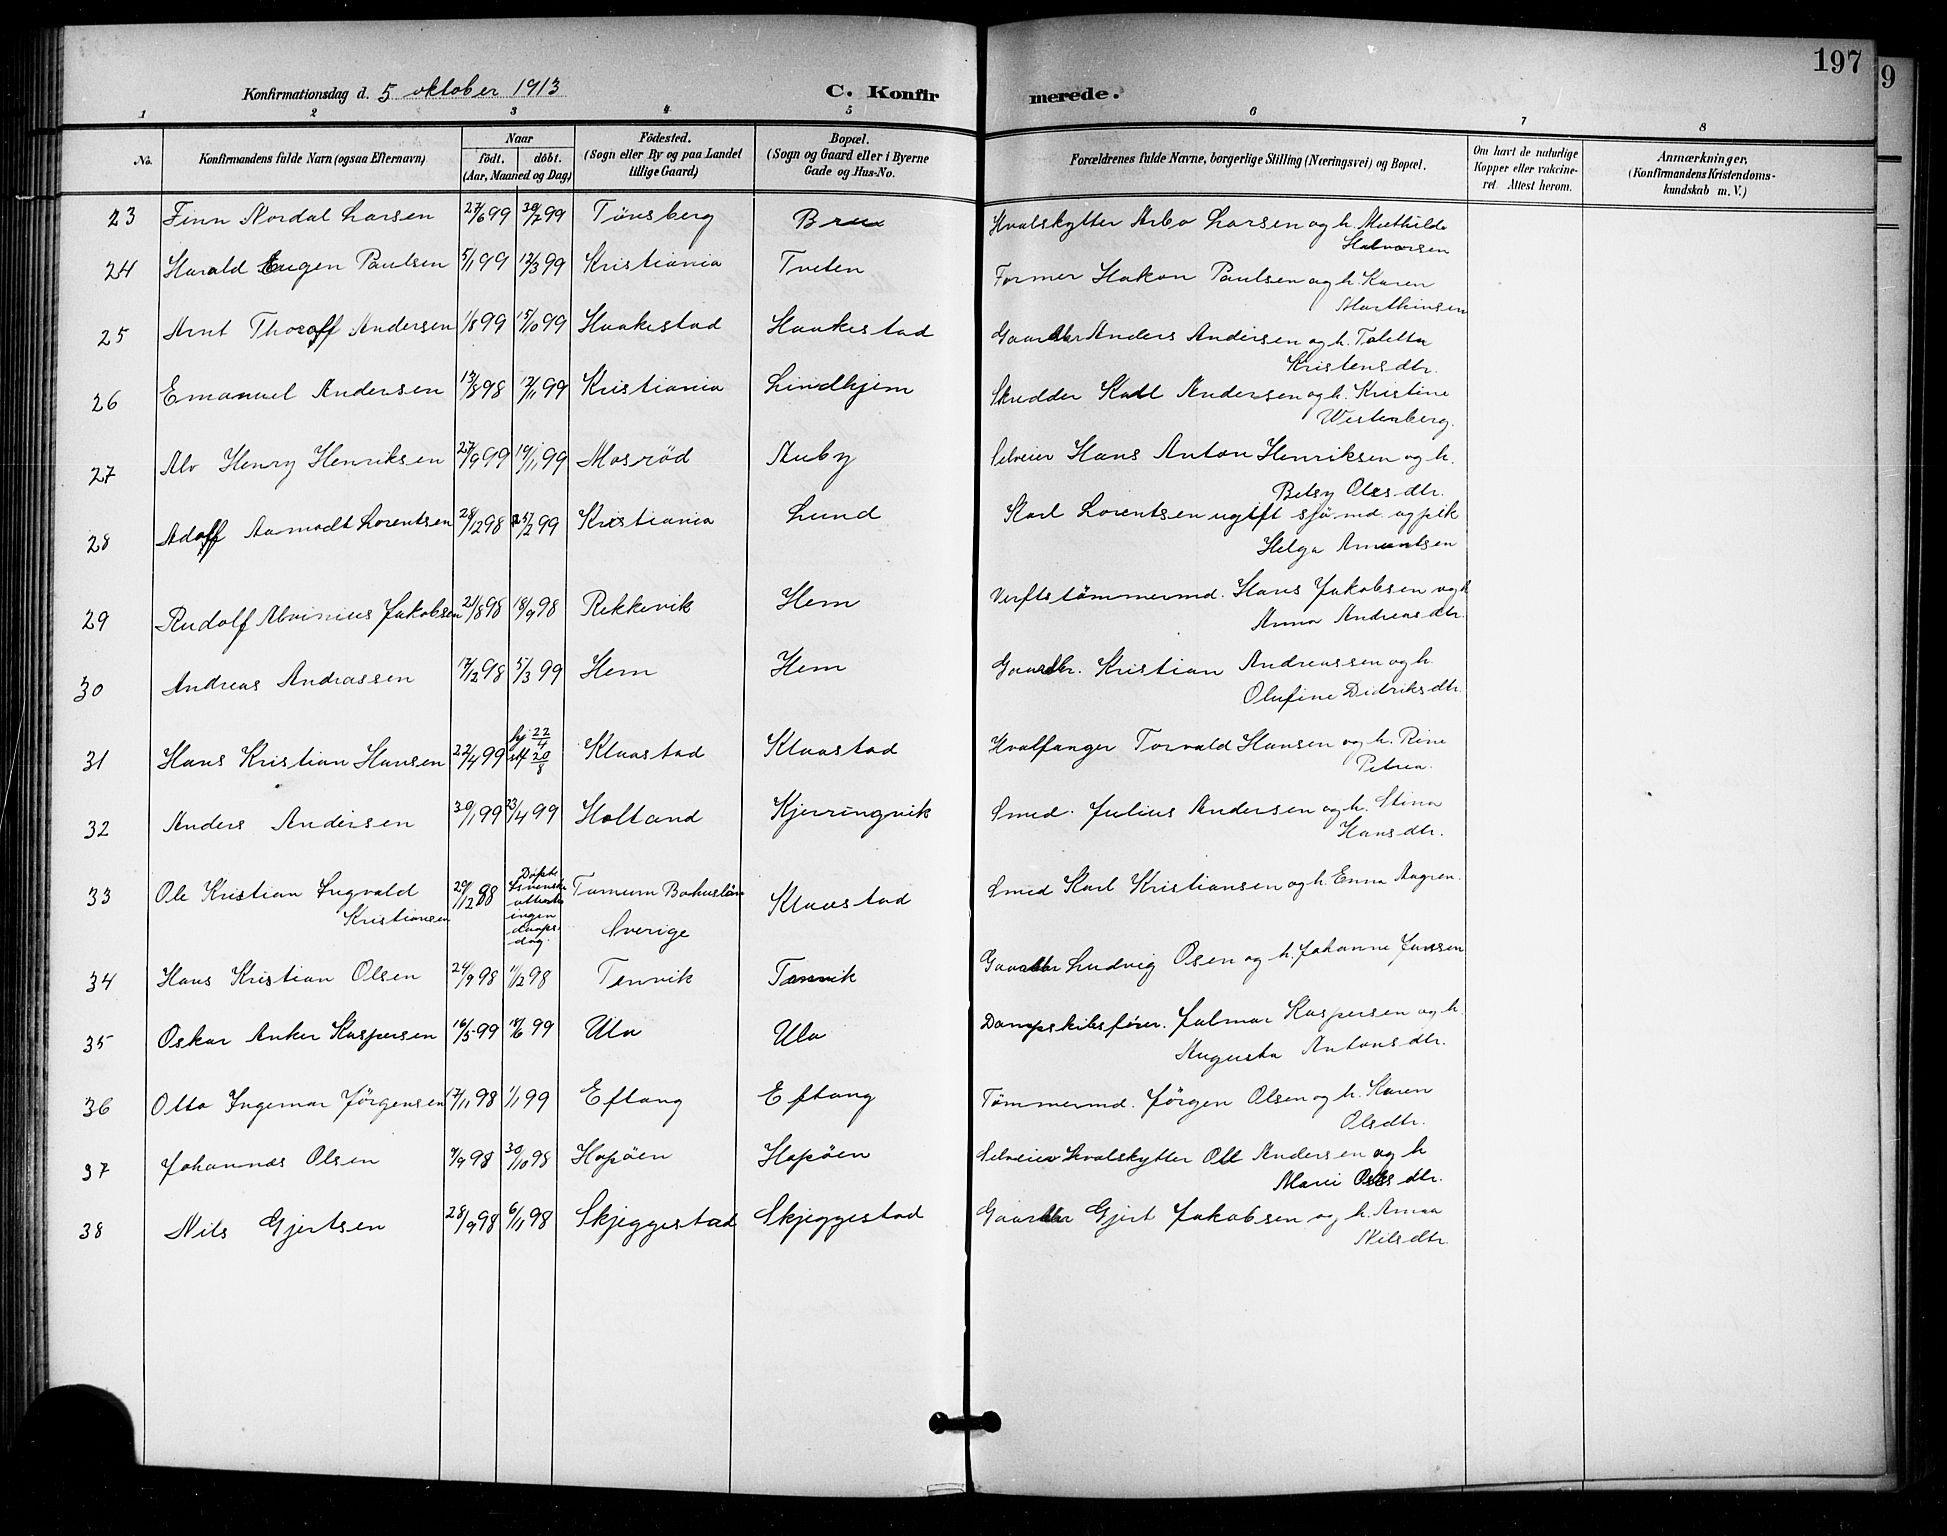 197
9
Konfirmationsdag d. 5 oktober 1913
C. Konfirmerede.
1 2 3 4 5 6 7 8
No. Konfirmandens fulde Navn (ogsaa Efternavn) Naar födt. döbt. (Aar, Maaned og Dag) Födested. (Sogn eller By og paa Landet tillige Gaard) Bopæl. (Sogn og Gaard eller i Byerne Gade og Hus-No. Forældrenes fulde Navne, borgerlige Stilling (Næringsvei) og Bopæl. Om havt de naturlige Kopper eller vakcineret. Attest herom. Anmærkninger. (Konfirmandens Kristendomskundskab m. V.)
23 Finn Nordal Larsen 27/6 99 99 Tønsberg Hvalskytter Arbo Larsen og h. Mathilde
Halvorsen
24 Harald Eugen Paulsen 5/1 99 12/3 99 Kristiania Tveten Former Hakon Paulsen og h. Karen
Marthinsen
25 Arnt Thoroff Andersen 1/8 99 15/10 99 Haakestad Haakestad Gaardbr Anders Andersen og h. Taletta
Kristensdtr.
26 Emanuel Andersen 13/8 98 12/11 99 Kristiania Lindhjem Skredder Karl Andersen og h. Kristine
Westerberg.
27 Alv Henry Henriksen 27/9 99 19/11 99 Mosrød Auby Selveier Hans Anton Henriksen og h.
Betsy Olsdtr.
28 Adoff Aamodt Lorentsen 28/12 98 25/2 99 Kristiania Lund Karl Lorentsen ugift sjømd. og pik
Helga Amundsen
29 Rudolf Alvinius Jakobsen 21/8 98 18/9 98 Rekkevik Hem Verftstømmermd. Hans Jakobsen og h
Anna Andreasdtr.
30 Andreas Andreassen 17/12 98 5/3 99 Hem Hem Gaardbr. Kristian Andreassen og h.
Olufine Didriksdtr.
31 Hans Kristian Hansen 22/4 99 hj 22/4 stf 20/8 Klaastad Klaastad Hvalfanger Torvald Hansen og h. Rine
Petrea.
32 Anders Andersen 30/1 99 23/4 99 Holtand Kjerringvik Smed. Julius Andersen og h. Stina
Hansdtr.
33 Ole Kristian Ingvald
Kristiansen 29/12 98 Døpt i svenske attest ingen daapsdag. Tanum Bohuslän
Sverige Klaastad Smed Karl Kristiansen og h. Enna Aagren.
34 Hans Kristian Olsen 24/9 98 11/12 98 Tenvik Tenvik Gaardbr Ludvig Osen og h. Johanne Jansen
35 Oskar Anker Kaspersen 16/5 99 18/6 99 Ula Ula Dampskibsfører. Jalmar Kaspersen og h.
Augusta Antonsdtr.
36 Otto Ingemar Jørgensen 17/11 98 1/1 99 Eftang Eftang Tømmermd. Jørgen Olsen og h. Karen
Olsdtr.
37 Johannes Olsen 7/9 98 30/10 98 Hopøen Hopøen Selveier hvalskytter Ole Andersen og h
Marie Olsdtr.
38 Nils Gjertsen 28/9 98 6/11 98 Skjeggestad Skjeggestad Gaardbr Gjert Jakobsen og h. Anna
Nilsdtr.